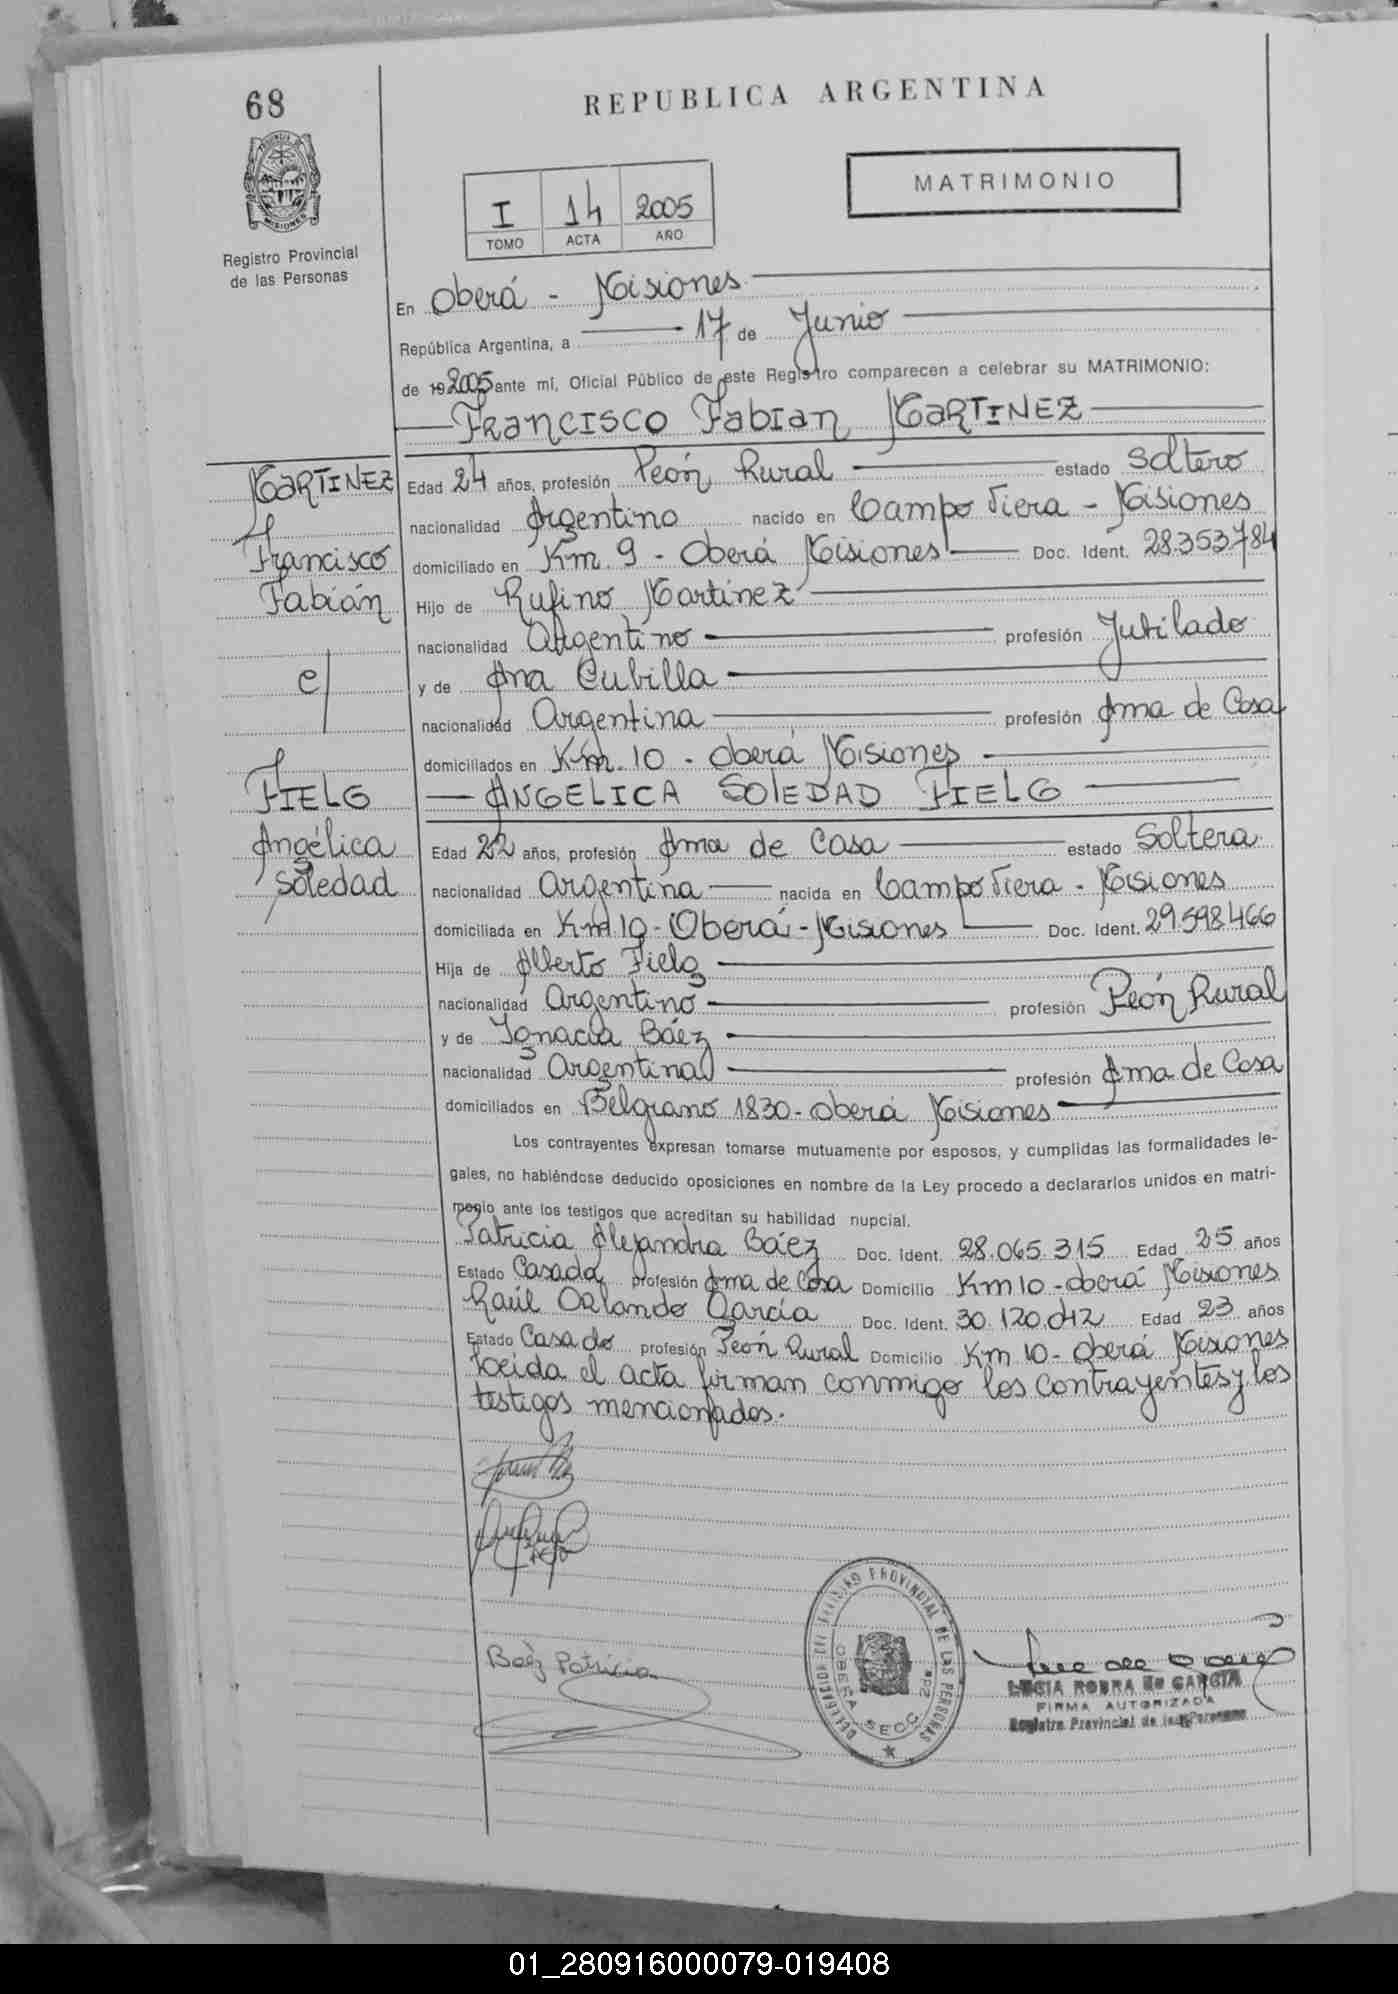 68
REPUBLICA ARGENTINA
MATRIMONIO
I 14 2005
TOMO ACTA AÑO
Registro Provincial
de las Personas
En Oberá - Misiones
República Argentina, a 17 de Junio
de 19 2005 ante mí, Oficial Público de este Registro comparecen a celebrar su MATRIMONIO:
Francisco Fabian MARTINEZ
MARTINEZ
Francisco
Fabián
c/
FIELG
Angélica
Soledad
Edad 24 años, profesión Peón Rural estado Soltero
nacionalidad Argentino nacido en Campo Viera - Misiones
domiciliado en Km. 9 - Oberá Misiones Doc. Ident. 28.353.784
Hijo de Rufino Martinez
nacionalidad Argentino profesión Jubilado
y de Ana Cubilla
nacionalidad Argentina profesión Ama de Casa
domiciliados en Km. 10 - Oberá Misiones
ANGELICA SOLEDAD FIELG
Edad 22 años, profesión Ama de Casa estado Soltera
nacionalidad Argentina nacida en Campo Viera - Misiones
domiciliada en Km 10 - Oberá - Misiones Doc. Ident. 29.598.466
Hija de Alberto Fielg
nacionalidad Argentino profesión Peón Rural
y de Ignacia Báez
nacionalidad Argentina profesión Ama de Casa
domiciliados en Belgrano 1830 - Oberá Misiones
Los contrayentes expresan tomarse mutuamente por esposos, y cumplidas las formalidades le-
gales, no habiéndose deducido oposiciones en nombre de la Ley procedo a declararlos unidos en matri-
monio ante los testigos que acreditan su habilidad nupcial.
Patricia Alejandra Báez Doc. Ident. 28.065.315 Edad 25 años
Estado Casada profesión Ama de Casa Domicilio Km 10 - Oberá Misiones
Raúl Orlando García Doc. Ident. 30.120.042 Edad 23 años
Estado Casado profesión Peón Rural Domicilio Km 10 - Oberá Misiones
Leída el acta firman conmigo los contrayentes y los
testigos mencionados.
Baéz Patricia
DELEGACION DEL REGISTRO PROVINCIAL DE LAS PERSONAS
OBERA SECC. 2da
FIRMA AUTORIZADA
Registro Provincial de las Personas
01_280916000079-019408